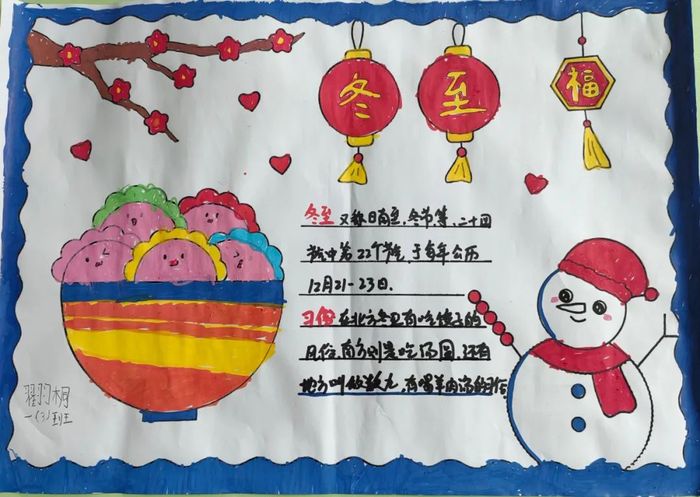 冬至
福
冬至又称日南至，冬节等，二十四
节气中第22个节气，于每年公历
12月21-23日.
习俗在北方冬至有吃饺子的
风俗，南方则是吃汤圆，还有
地方叫做数九，有喝羊肉汤的习俗
一(3)班